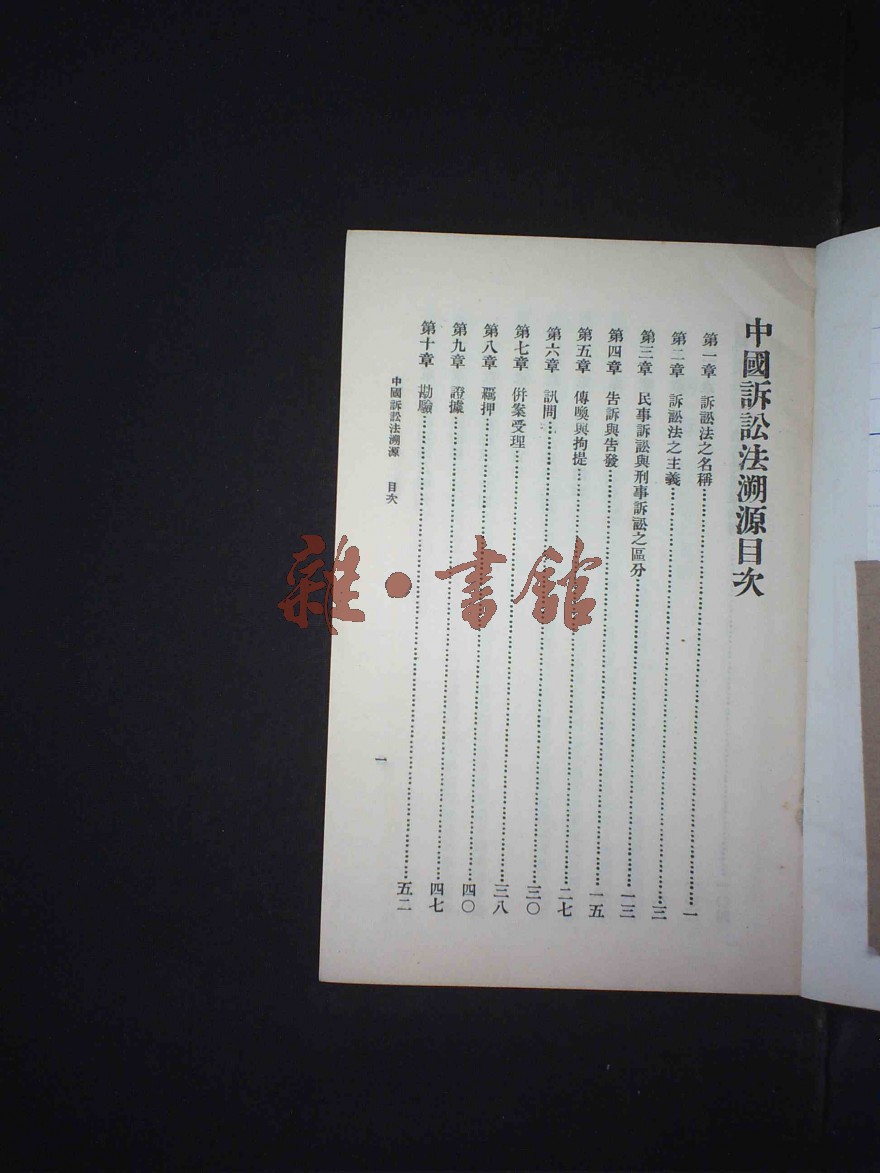 中國訴訟法溯源目次
第一章 訴訟法之名稱……一
第二章 訴訟法之主義……三
第三章 民事訴訟與刑事訴訟之區分……一三
第四章 告訴與告發……一五
第五章 傳喚與拘提……二七
第六章 訊問……三〇
第七章 併案受理……三八
第八章 羈押……四〇
第九章 證據……四七
第十章 勘驗……五二
中國訴訟法溯源 目次
一
雜·書館